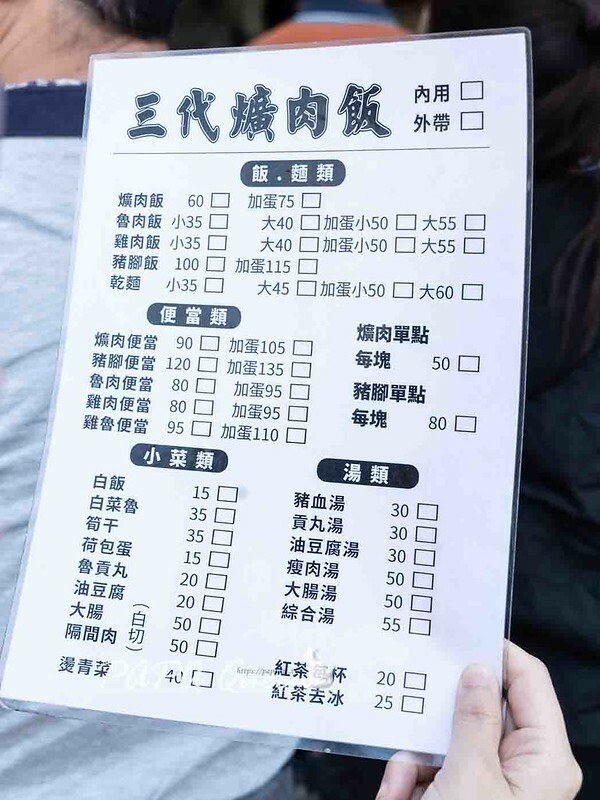 三代爌肉飯
內用 □
外帶 □
飯.麵類
爌肉飯 60 □ 加蛋75 □
魯肉飯 小35 □ 大40 □ 加蛋小50 □ 大55 □
雞肉飯 小35 □ 大40 □ 加蛋小50 □ 大55 □
豬腳飯 100 □ 加蛋115 □
乾麵 小35 □ 大45 □ 加蛋小50 □ 大60 □
便當類
爌肉便當 90 □ 加蛋105 □
豬腳便當 120 □ 加蛋135 □
魯肉便當 80 □ 加蛋95 □
雞肉便當 80 □ 加蛋95 □
雞魯便當 95 □ 加蛋110 □
爌肉單點
每塊 50 □
豬腳單點
每塊 80 □
小菜類
白飯 15 □
白菜魯 35 □
筍干 35 □
荷包蛋 15 □
魯貢丸 20 □
油豆腐 20 □
大腸 (白切) 50 □
隔間肉 50 □
燙青菜 40 □
湯類
豬血湯 30 □
貢丸湯 30 □
油豆腐湯 30 □
瘦肉湯 50 □
大腸湯 50 □
綜合湯 55 □
紅茶每杯 20 □
紅茶去冰 25 □